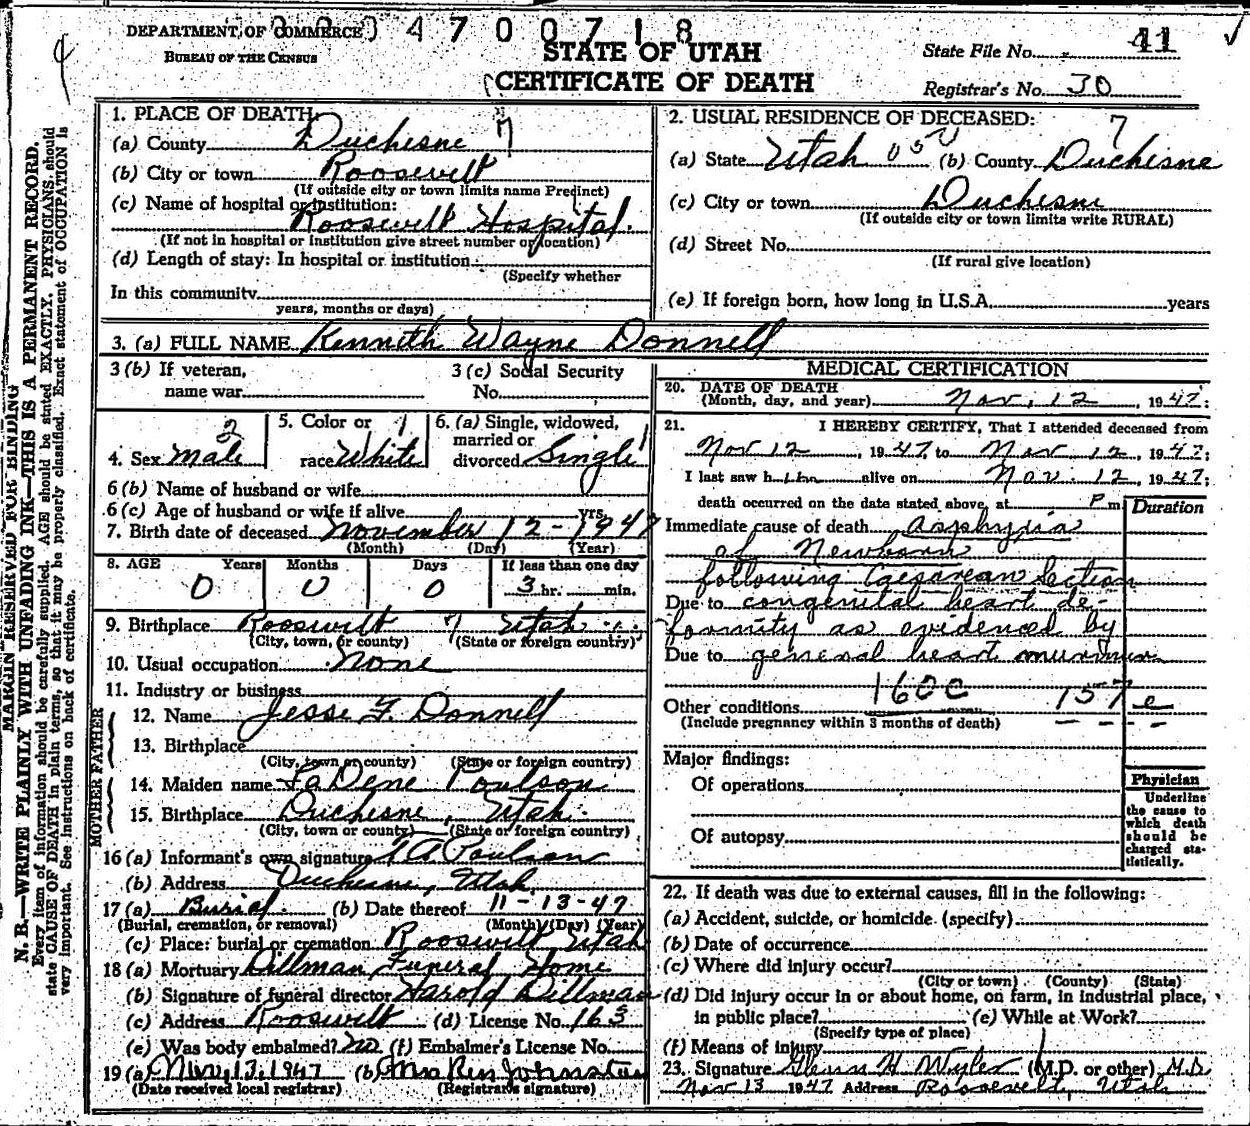 DEPARTMENT OF COMMERCE
BUREAU OF THE CENSUS
4700718
STATE OF UTAH
CERTIFICATE OF DEATH
State File No. 41
Registrar's No. 30
MARGIN RESERVED FOR BINDING
N. B.—WRITE PLAINLY WITH UNFADING INK—THIS IS A PERMANENT RECORD.
Every item of information should be carefully supplied. AGE should be stated EXACTLY. PHYSICIANS should
state CAUSE OF DEATH in plain terms, so that it may be properly classified. Exact statement of OCCUPATION is
very important. See instructions on back of certificate.
1. PLACE OF DEATH:
(a) County Duchesne 7
(b) City or town Roosevelt
(If outside city or town limits name Precinct)
(c) Name of hospital or institution:
Roosevelt Hospital.
(If not in hospital or institution give street number or location)
(d) Length of stay: In hospital or institution
(Specify whether
In this community
years, months or days)
2. USUAL RESIDENCE OF DECEASED:
7
(a) State Utah (b) County Duchesne
(c) City or town Duchesne
(If outside city or town limits write RURAL)
(d) Street No.
(If rural give location)
(e) If foreign born, how long in U.S.A. years
3. (a) FULL NAME Kenneth Wayne Donnell
3 (b) If veteran,
name war
3 (c) Social Security
No.
4. Sex Male 2
5. Color or race White 1
6. (a) Single, widowed, married or divorced Single 1
6 (b) Name of husband or wife
6 (c) Age of husband or wife if alive yrs.
7. Birth date of deceased November 12-1947
(Month) (Day) (Year)
8. AGE Years Months Days If less than one day
0 0 0 3 hr. min.
9. Birthplace Roosevelt 7 Utah
(City, town, or county) (State or foreign country)
10. Usual occupation None
11. Industry or business
FATHER
12. Name Jesse F. Donnell
13. Birthplace
(City, town or county) (State or foreign country)
MOTHER
14. Maiden name LaDene Poulson
15. Birthplace Duchesne, Utah.
(City, town or county) (State or foreign country)
16 (a) Informant's own signature Poulson
(b) Address Duchesne, Utah.
17 (a) Burial. (b) Date thereof 11-13-47
(Burial, cremation, or removal) (Month) (Day) (Year)
(c) Place: burial or cremation Roosevelt, Utah
18 (a) Mortuary Dillman Funeral Home
(b) Signature of funeral director Harold Dillman
(c) Address Roosevelt (d) License No. 163
(e) Was body embalmed? no (f) Embalmer's License No.
19 (a) Nov. 13, 1947 (b) Mrs Johnston
(Date received local registrar) (Registrar's signature)
MEDICAL CERTIFICATION
20. DATE OF DEATH
(Month, day, and year) Nov. 12, 1947;
21. I HEREBY CERTIFY, That I attended deceased from
Nov 12, 1947 to Nov 12, 1947;
I last saw him alive on Nov. 12, 1947;
death occurred on the date stated above, at P m
Duration
Immediate cause of death Asphyxia
of Newborn
following Caesarean Section
Due to congenital heart de-
formity as evidenced by
Due to general heart murmur
160c 157e
Other conditions
(Include pregnancy within 3 months of death)
Major findings:
Of operations
Of autopsy
Physician
Underline
the cause to
which death
should be
charged sta-
tistically.
22. If death was due to external causes, fill in the following:
(a) Accident, suicide, or homicide. (specify)
(b) Date of occurrence
(c) Where did injury occur?
(City or town) (County) (State)
(d) Did injury occur in or about home, on farm, in industrial place,
in public place? (e) While at Work?
(Specify type of place)
(f) Means of injury
23. Signature Glenn H Wyler (M.D. or other) M.D.
Nov 13 1947 Address Roosevelt, Utah